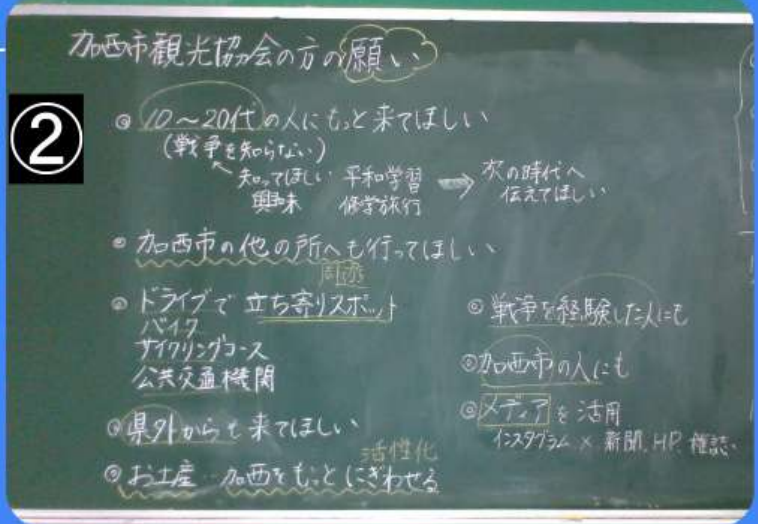 加西市観光協会の方の願い
②
◎ 10〜20代の人にもっと来てほしい
(戦争を知らない)
知ってほしい 平和学習 → 次の時代へ
興味 修学旅行 伝えてほしい
◎ 加西市の他の所へも行ってほしい
周遊
◎ ドライブで 立ち寄りスポット
バイク
サイクリングコース
公共交通機関
◎ 県外からも来てほしい
活性化
◎ お土産‥加西をもっとにぎわせる
◎ 戦争を経験した人にも
◎ 加西市の人にも
◎ メディアを活用
インスタグラム × 新聞、HP、雑誌、